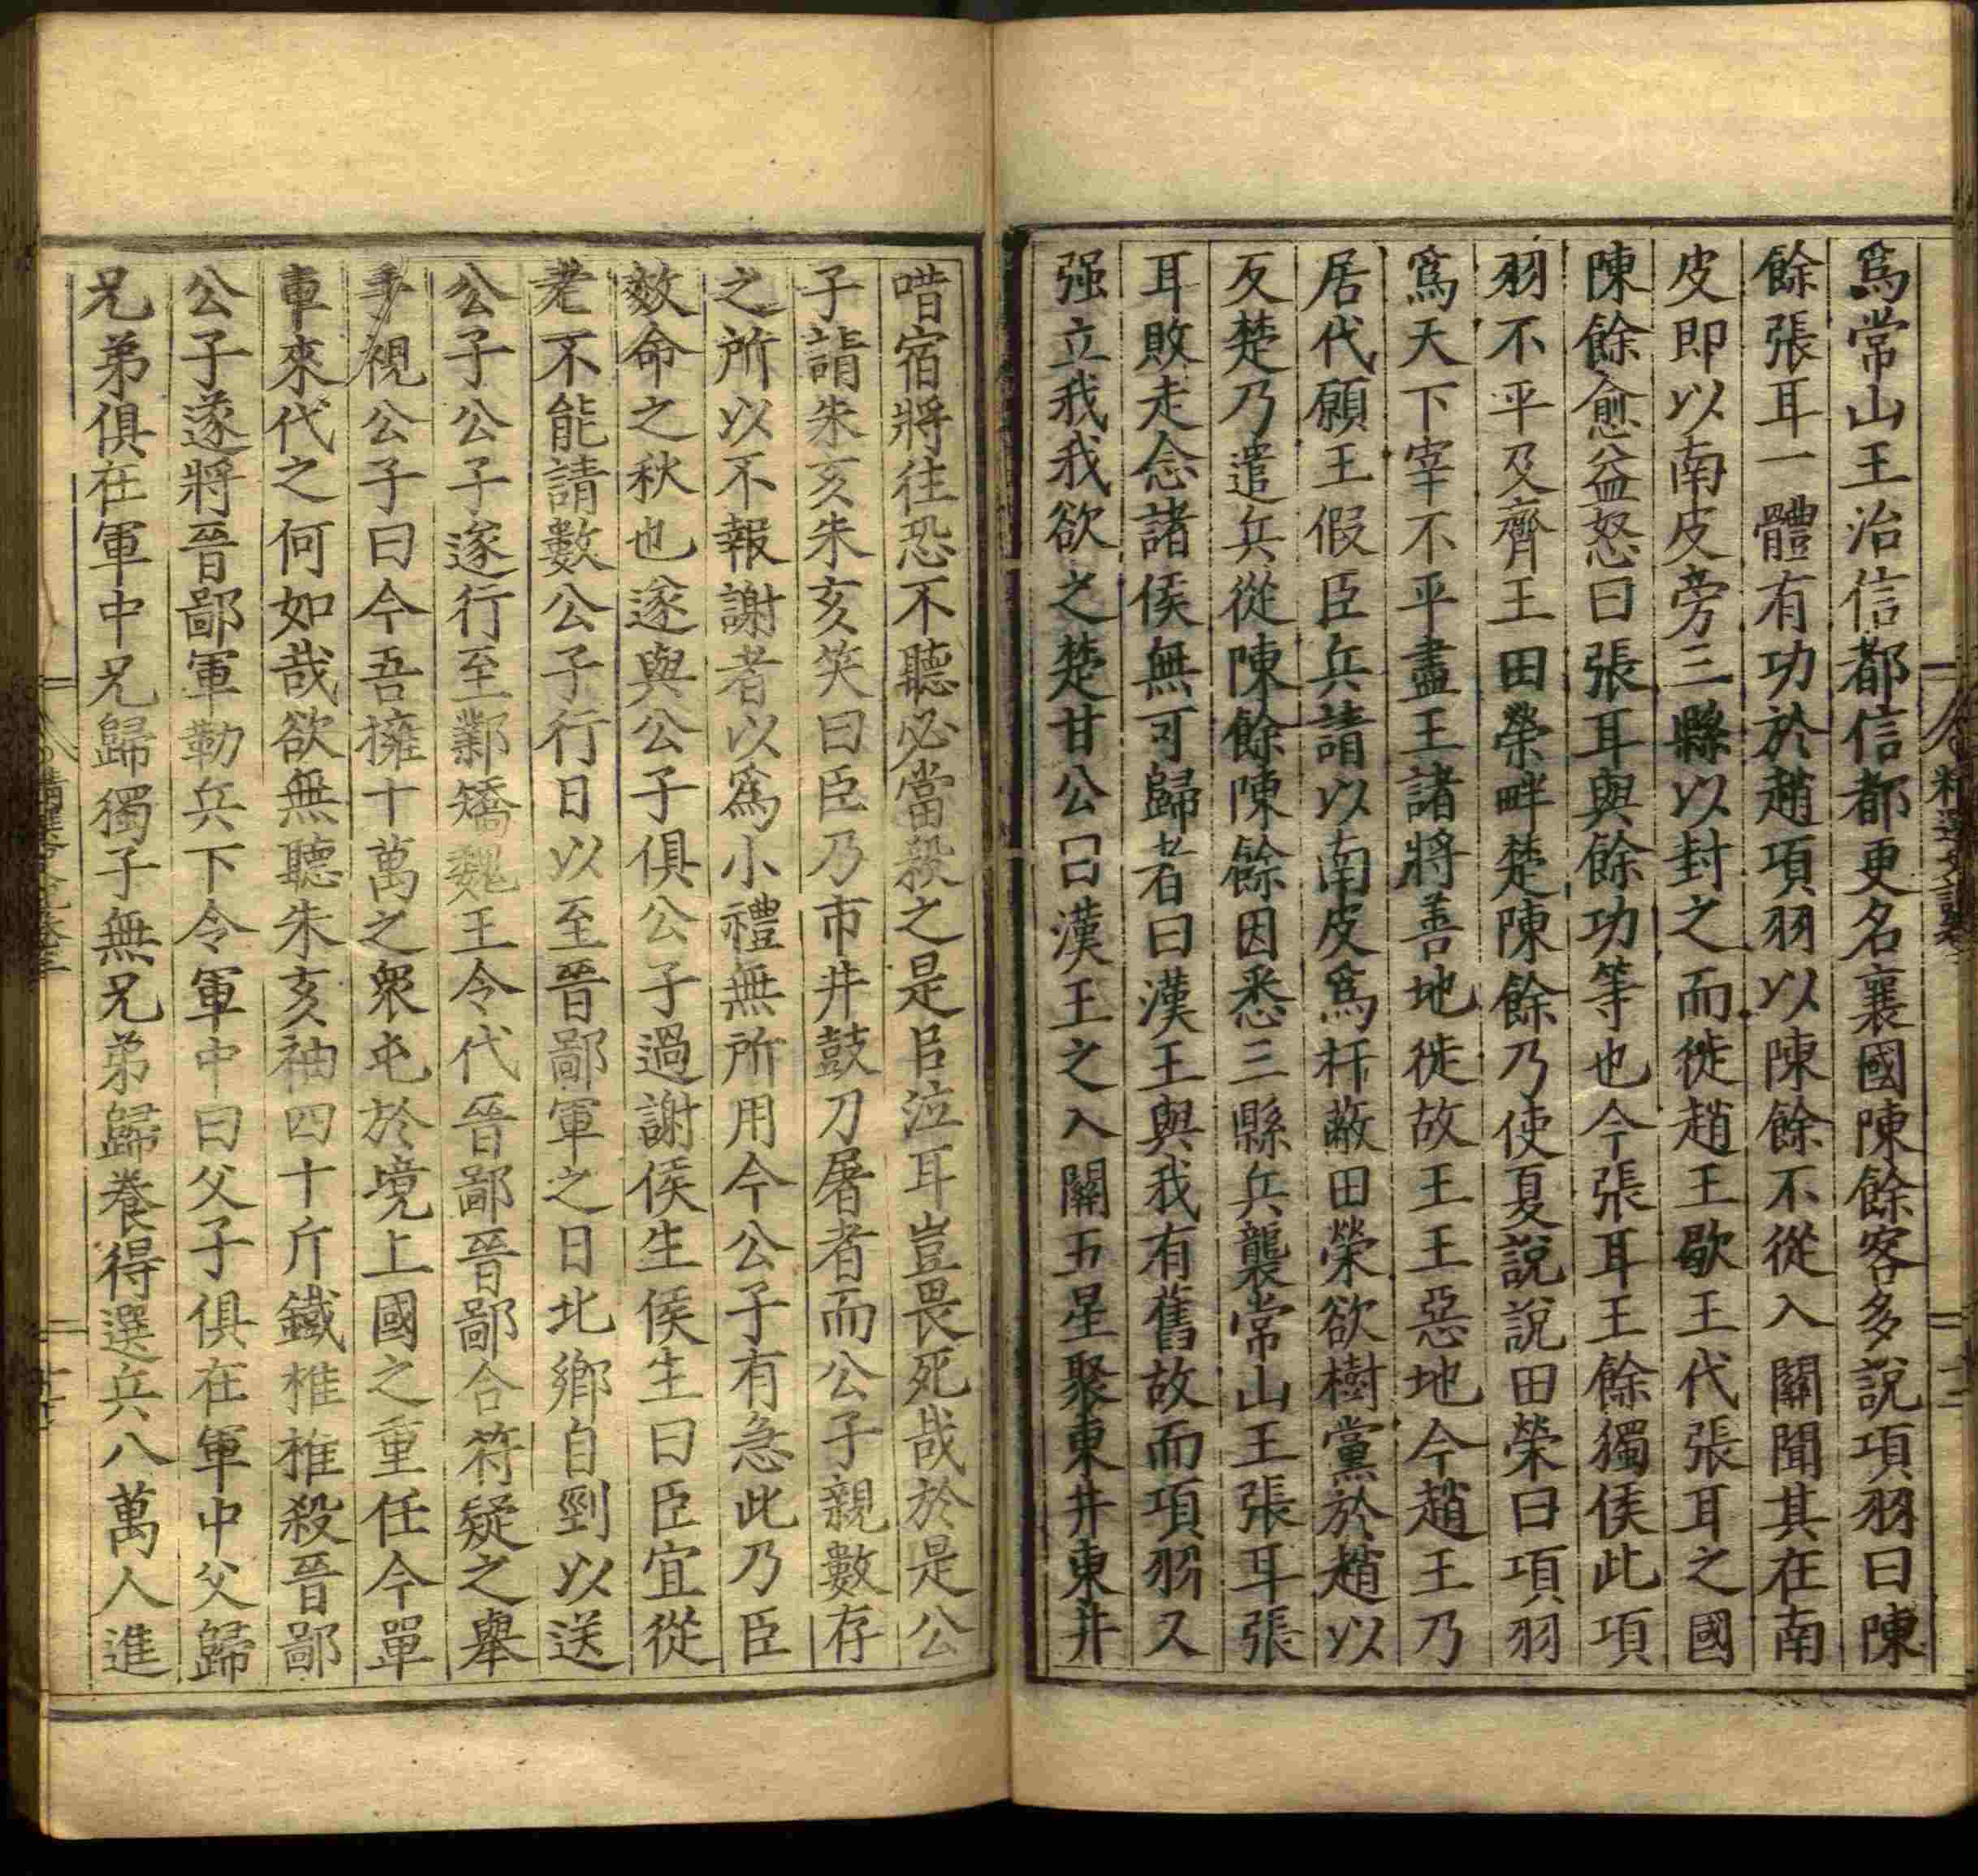 爲常山王治信都信都更名襄國陳餘客多說項羽曰陳
餘張耳一體有功於趙項羽以陳餘不從入關聞其在南
皮即以南皮旁三縣以封之而徙趙王歇王代張耳之國
陳餘愈益怒曰張耳與餘功等也今張耳王餘獨侯此項
羽不平及齊王田榮畔楚陳餘乃使夏說說田榮曰項羽
爲天下宰不平盡王諸將善地徙故王王惡地今趙王乃
居代願王假臣兵請以南皮爲扞蔽田榮欲樹黨於趙以
反楚乃遣兵從陳餘陳餘因悉三縣兵襲常山王張耳張
耳敗走念諸侯無可歸者曰漢王與我有舊故而項羽又
强立我我欲之楚甘公曰漢王之入關五星聚東井東井
唶宿將往恐不聽必當殺之是㠯泣耳豈畏死哉於是公
子請朱亥朱亥笑曰臣乃市井鼓刀屠者而公子親數存
之所以不報謝者以爲小禮無所用今公子有急此乃臣
效命之秋也遂與公子俱公子過謝侯生侯生曰臣宜從
老不能請數公子行日以至晉鄙軍之日北鄉自剄以送
公子公子遂行至鄴矯魏王令代晉鄙晉鄙合符疑之舉
手視公子曰今吾擁十萬之衆屯於境上國之重任今單
車來代之何如哉欲無聽朱亥袖四十斤鐵椎椎殺晉鄙
公子遂將晉鄙軍勒兵下令軍中曰父子俱在軍中父歸
兄弟俱在軍中兄歸獨子無兄弟歸養得選兵八萬人進